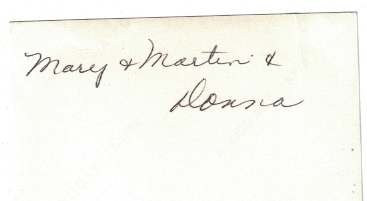 Mary & Martin &
Donna